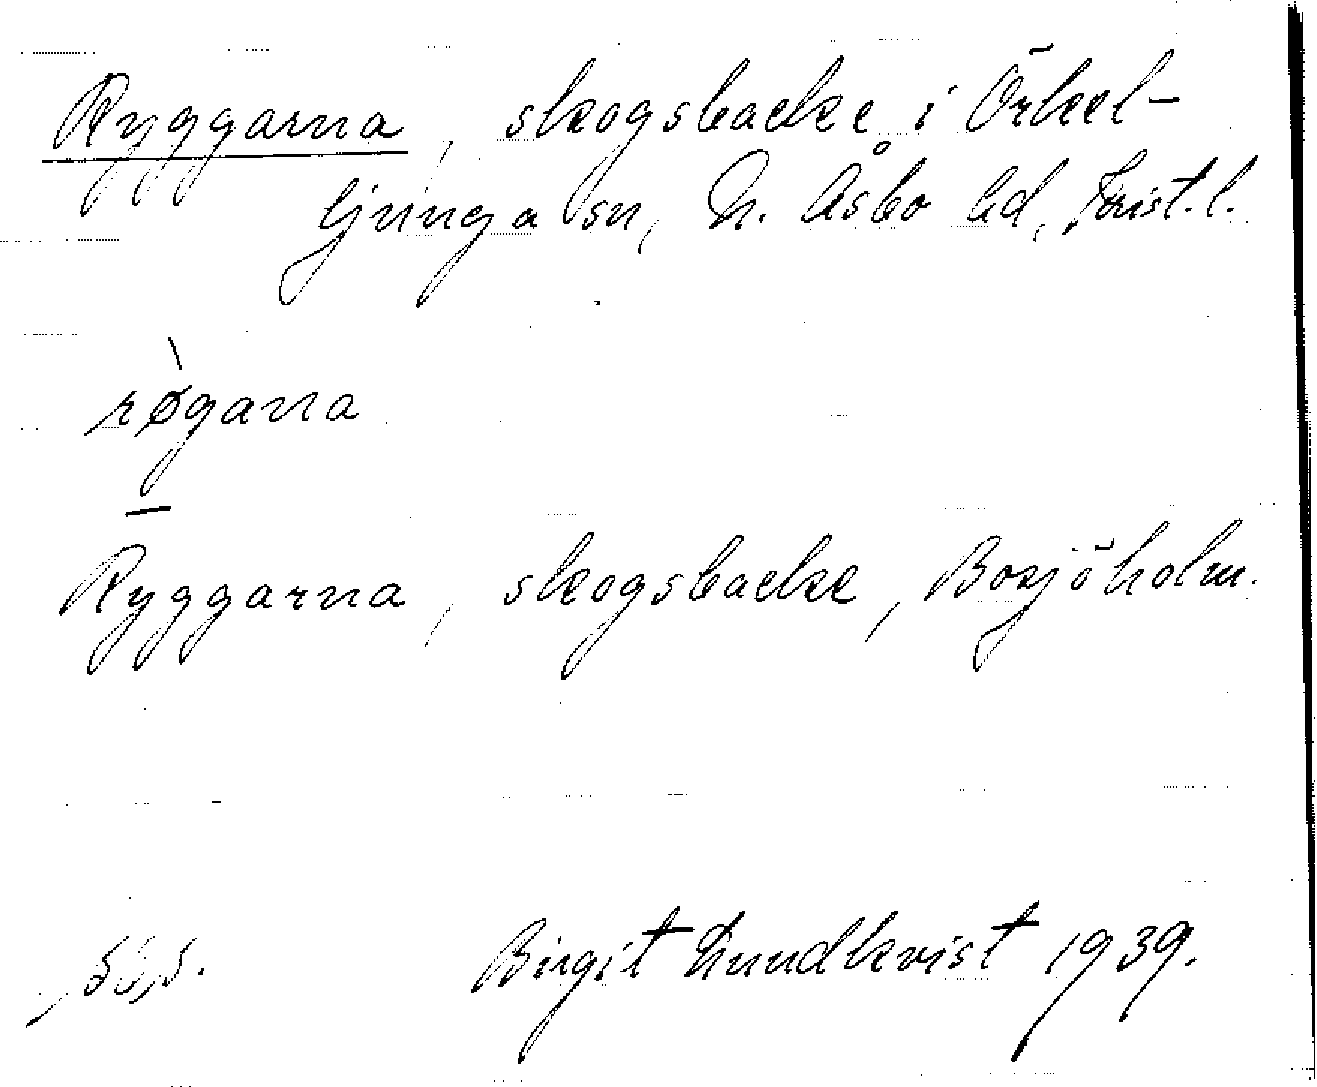 Ryggarna, skogsbacke i Örkel-
ljunga sn, N. Åsbo hd, Krist. l.
rø̀garna
Ryggarna, skogsbacke, Bosjöholm.
Birgit Lundkvist 1939.